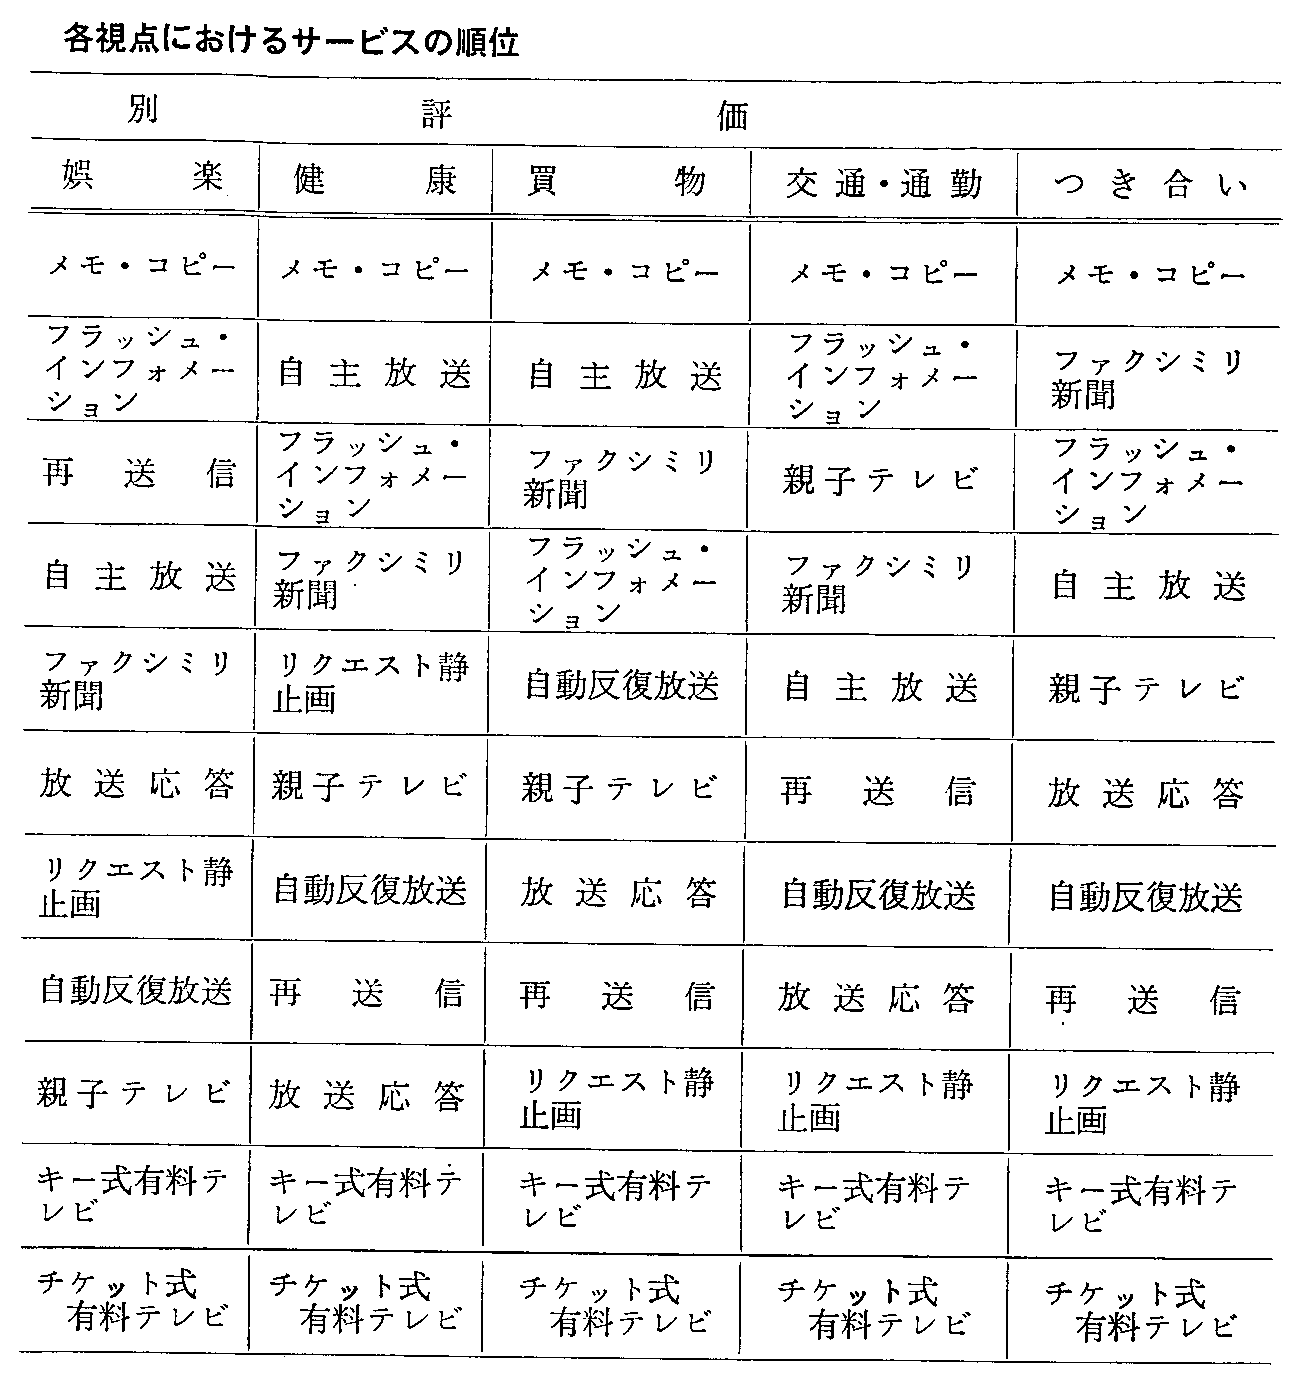 各視点におけるサービスの順位
別 評 価
娯楽 健康 買物 交通・通勤 つき合い
メモ・コピー メモ・コピー メモ・コピー メモ・コピー メモ・コピー
フラッシュ・インフォメーション 自主放送 自主放送 フラッシュ・インフォメーション ファクシミリ新聞
再送信 フラッシュ・インフォメーション ファクシミリ新聞 親子テレビ フラッシュ・インフォメーション
自主放送 ファクシミリ新聞 フラッシュ・インフォメーション ファクシミリ新聞 自主放送
ファクシミリ新聞 リクエスト静止画 自動反復放送 自主放送 親子テレビ
放送応答 親子テレビ 親子テレビ 再送信 放送応答
リクエスト静止画 自動反復放送 放送応答 自動反復放送 自動反復放送
自動反復放送 再送信 再送信 放送応答 再送信
親子テレビ 放送応答 リクエスト静止画 リクエスト静止画 リクエスト静止画
キー式有料テレビ キー式有料テレビ キー式有料テレビ キー式有料テレビ キー式有料テレビ
チケット式有料テレビ チケット式有料テレビ チケット式有料テレビ チケット式有料テレビ チケット式有料テレビ